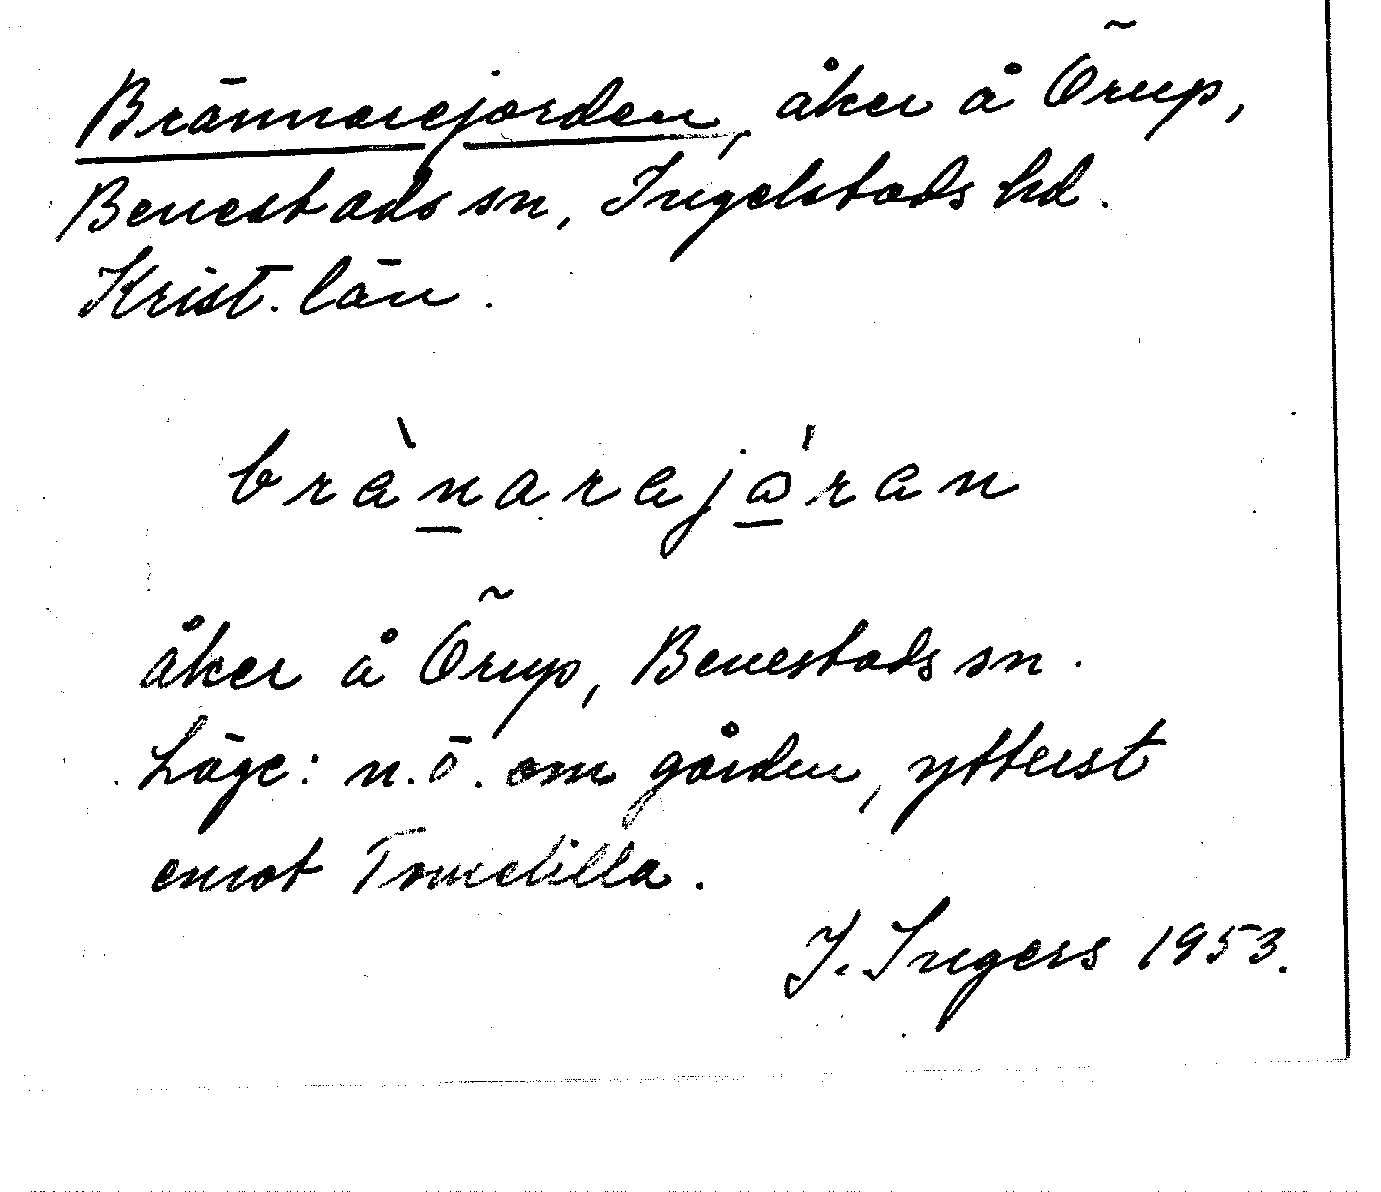 Brännarejorden, åker å Örup,
Benestads sn, Ingelstads hd.
Krist. län.
brànarajá̱ran
åker å Örup, Benestads sn.
Läge: n.ö. om gården, ytterst
emot Tomelilla.
I. Ingers 1953.